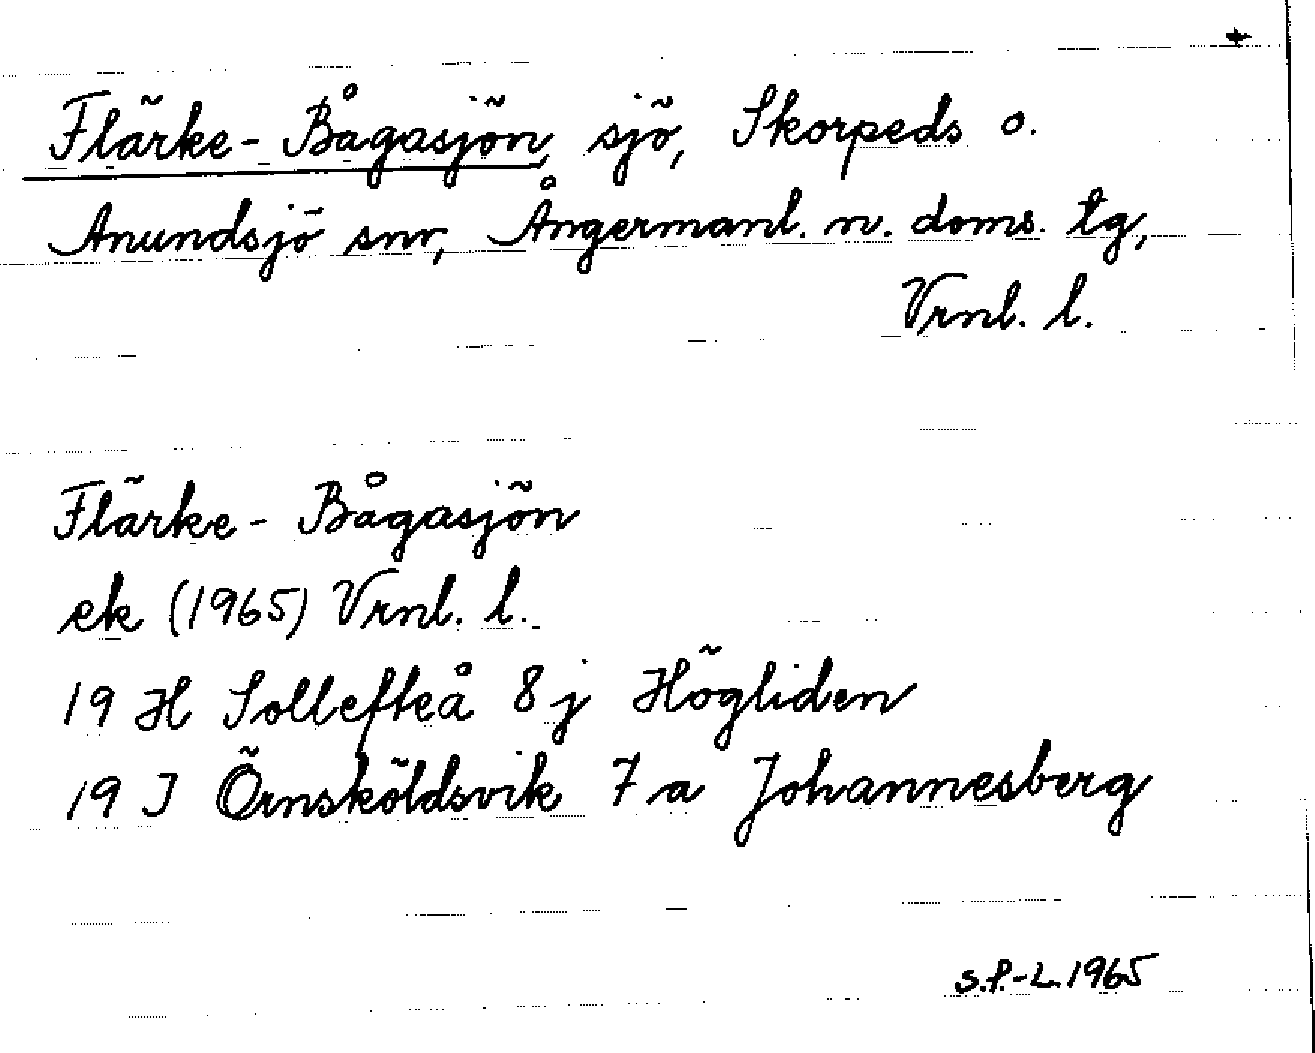 +
Flärke-Bågasjön, sjö, Skorpeds o.
Anundsjö snr, Ångermanl. n. doms. tg,
Vrnl. l.
Flärke-Bågasjön
ek (1965) Vrnl. l.
19 H Sollefteå 8 j Högliden
19 I Örnsköldsvik 7 a Johannesberg
S.P.-L. 1965